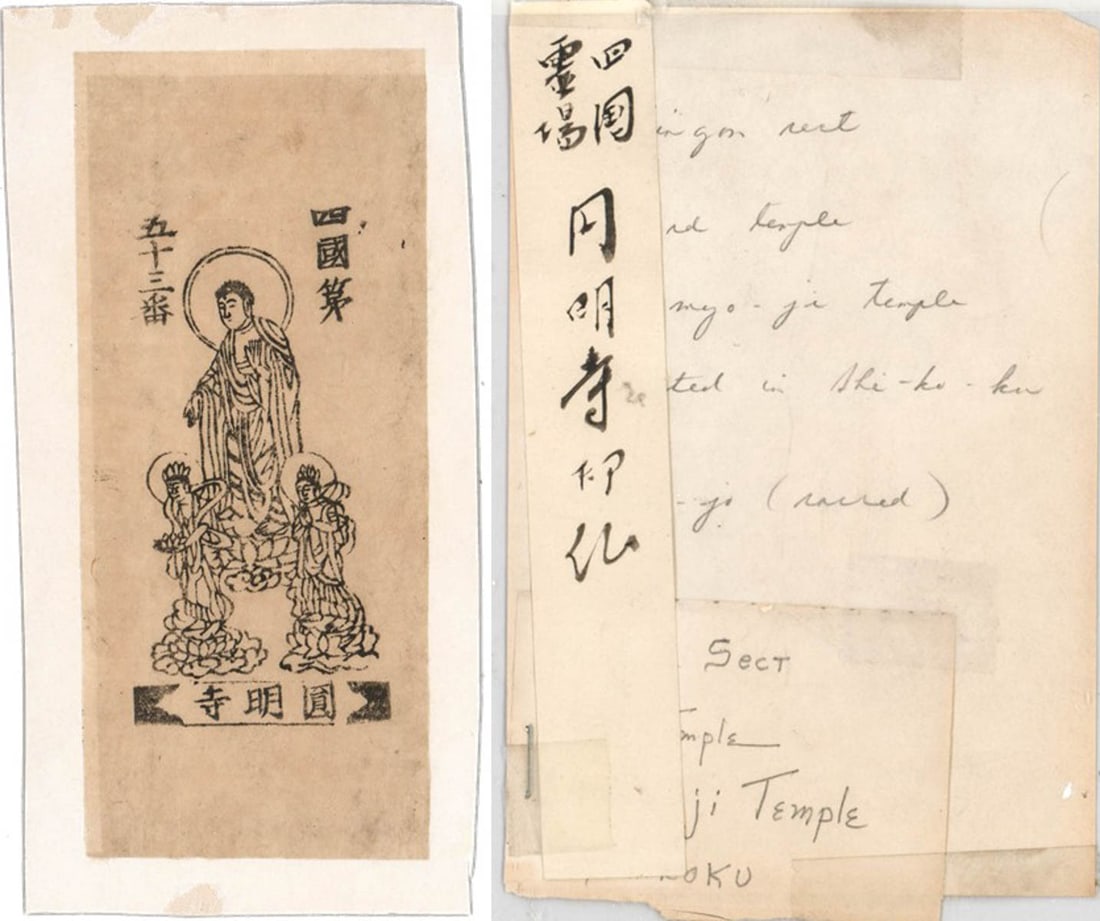 四國第
五十三番
圓明寺
四国
霊場
円明寺印仏
ingon sect
rd temple
myo-ji temple
ted in Shi-ko-ku
-jo (sacred)
Sect
mple
ji Temple
OKU